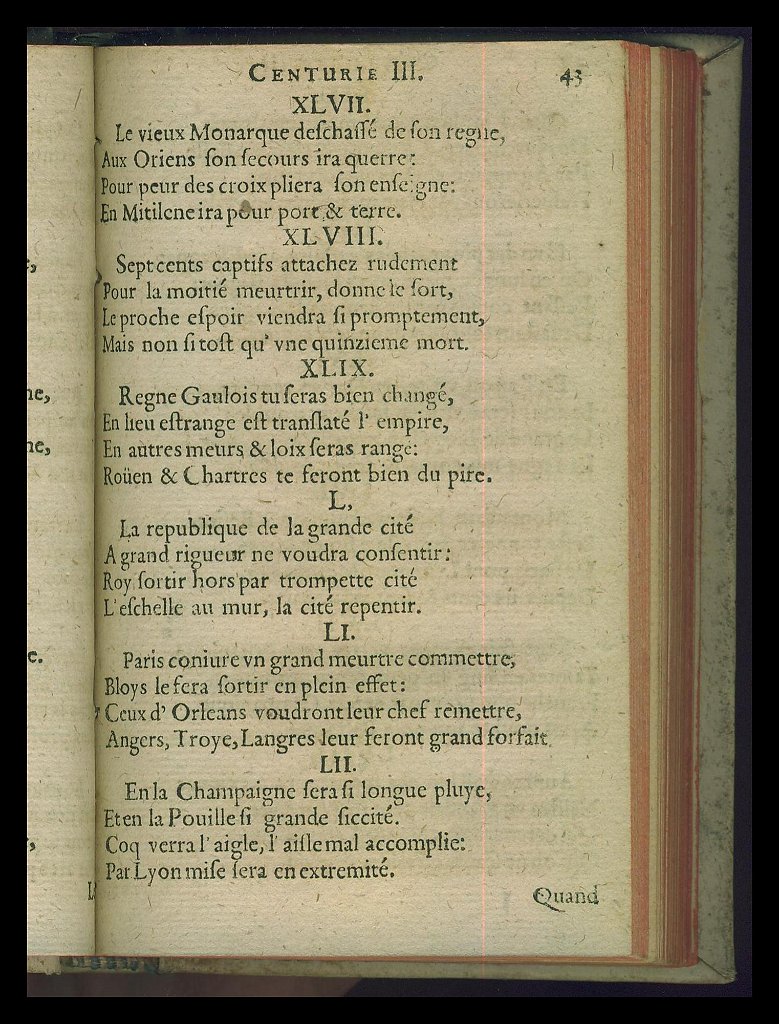 CENTURIE III. 43
XLVII.
Le vieux Monarque deſchaſſé de ſon regne,
Aux Oriens ſon ſecours ira querre:
Pour peur des croix pliera ſon enſeigne:
En Mitilene ira pour port & terre.
XLVIII.
Sept cents captifs attachez rudement
Pour la moitié meurtrir, donne le ſort,
Le proche eſpoir viendra ſi promptement,
Mais non ſi toſt qu' vne quinzieme mort.
XLIX.
Regne Gaulois tu ſeras bien changé,
En lieu eſtrange eſt tranſlaté l' empire,
En autres meurs & loix ſeras range:
Roüen & Chartres te feront bien du pire.
L,
La republique de la grande cité
A grand rigueur ne voudra conſentir:
Roy ſortir hors par trompette cité
L'eſchelle au mur, la cité repentir.
LI.
Paris coniure vn grand meurtre commettre,
Bloys le fera ſortir en plein effet:
Ceux d' Orleans voudront leur chef remettre,
Angers, Troye, Langres leur feront grand forfait
LII.
En la Champaigne ſera ſi longue pluye,
Et en la Pouille ſi grande ſiccité.
Coq verra l'aigle, l' aiſle mal accomplie:
Par Lyon miſe ſera en extremité.
Quand